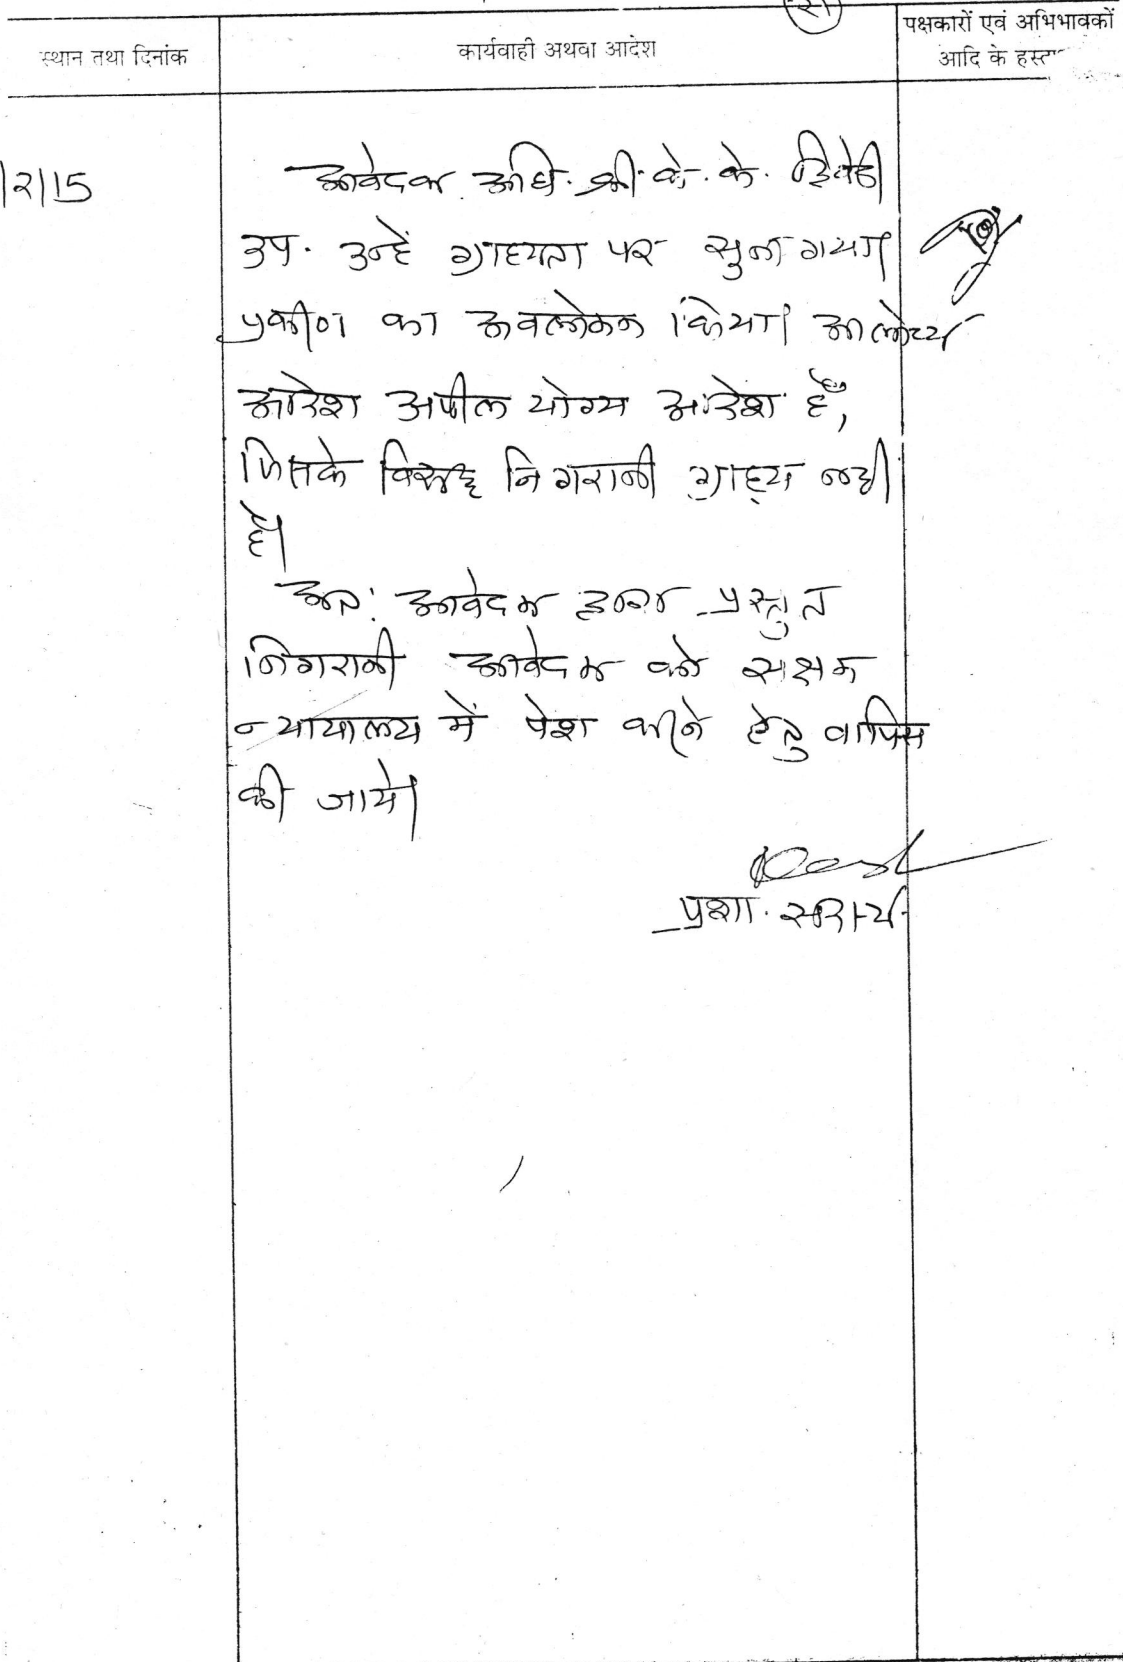 स्थान तथा दिनांक
कार्यवाही अथवा आदेश
पक्षकारों एवं अभिभावकों
आदि के हस्ता
|2|15
आवेदक अधि. श्री के. के. द्विवेदी
उप. उन्हें ग्राह्यता पर सुना गया।
प्रकरण का अवलोकन किया। आलोच्य
आदेश अपील योग्य आदेश है,
जिसके विरूद्ध निगरानी ग्राह्य नही
है।
अतः आवेदक द्वारा प्रस्तुत
निगरानी आवेदक को सक्षम
न्यायालय में पेश करने हेतु वापिस
की जाये।
प्रशा. सदस्य